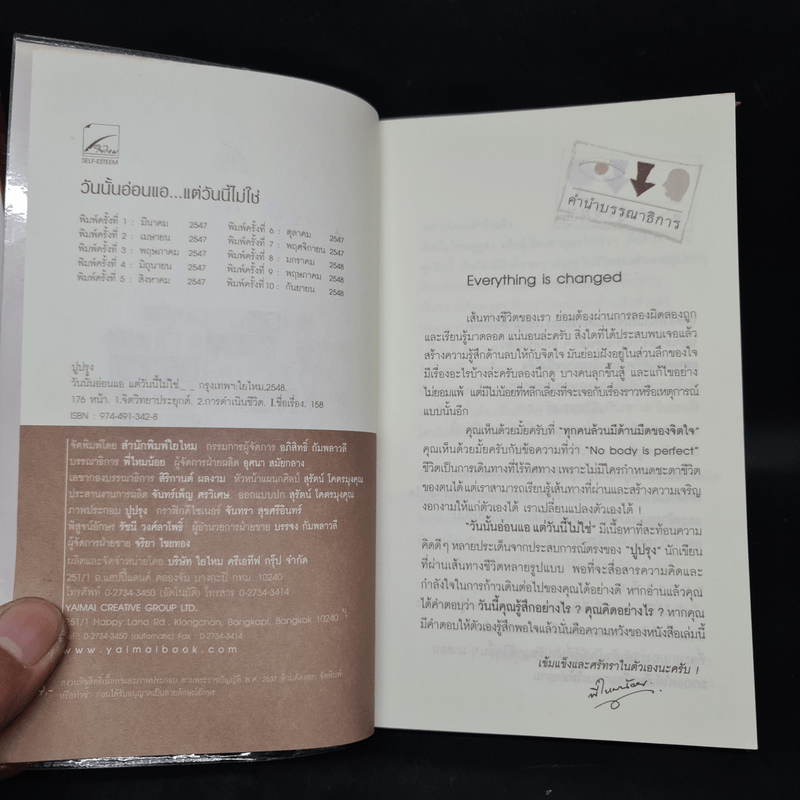 SELF-ESTEEM
วันนั้นอ่อนแอ...แต่วันนี้ไม่ใช่
พิมพ์ครั้งที่ 1 : มีนาคม 2547
พิมพ์ครั้งที่ 2 : เมษายน 2547
พิมพ์ครั้งที่ 3 : พฤษภาคม 2547
พิมพ์ครั้งที่ 4 : มิถุนายน 2547
พิมพ์ครั้งที่ 5 : สิงหาคม 2547
พิมพ์ครั้งที่ 6 : ตุลาคม 2547
พิมพ์ครั้งที่ 7 : พฤศจิกายน 2547
พิมพ์ครั้งที่ 8 : มกราคม 2548
พิมพ์ครั้งที่ 9 : พฤษภาคม 2548
พิมพ์ครั้งที่ 10 : กันยายน 2548
ปูปรุง
วันนั้นอ่อนแอ แต่วันนี้ไม่ใช่._ _ กรุงเทพฯ:ใยไหม,2548.
176 หน้า. 1.จิตวิทยาประยุกต์. 2.การดำเนินชีวิต. I.ชื่อเรื่อง. 158
ISBN : 974-491-342-8
จัดพิมพ์โดย สำนักพิมพ์ใยไหม กรรมการผู้จัดการ อภิสิทธิ์ กัมพลาวลี
บรรณาธิการ พี่ไหมน้อย ผู้จัดการฝ่ายผลิต อุศนา สมัยกลาง
เลขากองบรรณาธิการ สิริกานต์ ผลงาม หัวหน้าแผนกศิลป์ สุรัตน์ โคตรมุงคุณ
ประสานงานการผลิต จันทร์เพ็ญ ศรวิเศษ ออกแบบปก สุรัตน์ โคตรมุงคุณ
ภาพประกอบ ปูปรุง กราฟิกดีไซเนอร์ จันทรา สุขศรีอินทร์
พิสูจน์อักษร รัชนี วงค์ลาโพธิ์ ผู้อำนวยการฝ่ายขาย บรรจง กัมพลาวลี
ผู้จัดการฝ่ายขาย จริยา ไชยทอง
ผลิตและจัดจำหน่ายโดย บริษัท ใยไหม ครีเอทีฟ กรุ๊ป จำกัด
251/1 ถ.แฮปปี้แลนด์ คลองจั่น บางกะปิ กทม. 10240
โทรศัพท์ 0-2734-3450 (อัตโนมัติ) โทรสาร 0-2734-3414
YAIMAI CREATIVE GROUP LTD.
251/1 Happy Land Rd., Klongchan, Bangkapi, Bangkok 10240
0-2734-3450 (automatic) Fax : 0-2734-3414
www.yaimaibook.com
สงวนลิขสิทธิ์เนื้อเรื่องและภาพประกอบ ตามพระราชบัญญัติ พ.ศ. 2537 ห้ามคัดลอก จัดพิมพ์
หรือทำซ้ำ ก่อนได้รับอนุญาตเป็นลายลักษณ์อักษร
คำนำบรรณาธิการ
Everything is changed
เส้นทางชีวิตของเรา ย่อมต้องผ่านการลองผิดลองถูก
และเรียนรู้มาตลอด แน่นอนล่ะครับ สิ่งใดที่ได้ประสบพบเจอแล้ว
สร้างความรู้สึกด้านลบให้กับจิตใจ มันย่อมฝังอยู่ในส่วนลึกของใจ
มีเรื่องอะไรบ้างล่ะครับลองนึกดู บางคนลุกขึ้นสู้ และแก้ไขอย่าง
ไม่ยอมแพ้ แต่มีไม่น้อยที่หลีกเลี่ยงที่จะเจอกับเรื่องราวหรือเหตุการณ์
แบบนั้นอีก
คุณเห็นด้วยมั้ยครับที่ "ทุกคนล้วนมีด้านมืดของจิตใจ"
คุณเห็นด้วยมั้ยครับกับข้อความที่ว่า "No body is perfect"
ชีวิตเป็นการเดินทางที่ไร้ทิศทาง เพราะไม่มีใครกำหนดชะตาชีวิต
ของตนได้ แต่เราสามารถเรียนรู้เส้นทางที่ผ่านและสร้างความเจริญ
งอกงามให้แก่ตัวเองได้ เราเปลี่ยนแปลงตัวเองได้ !
"วันนั้นอ่อนแอ แต่วันนี้ไม่ใช่" มีเนื้อหาที่สะท้อนความ
คิดดีๆ หลายประเด็นจากประสบการณ์ตรงของ "ปูปรุง" นักเขียน
ที่ผ่านเส้นทางชีวิตหลายรูปแบบ พอที่จะสื่อสารความคิดและ
กำลังใจในการก้าวเดินต่อไปของคุณได้อย่างดี หากอ่านแล้วคุณ
ได้คำตอบว่า วันนี้คุณรู้สึกอย่างไร ? คุณคิดอย่างไร ? หากคุณ
มีคำตอบให้ตัวเองรู้สึกพอใจแล้วนั่นคือความหวังของหนังสือเล่มนี้
เข้มแข็งและศรัทธาในตัวเองนะครับ !
พี่ไหมน้อย